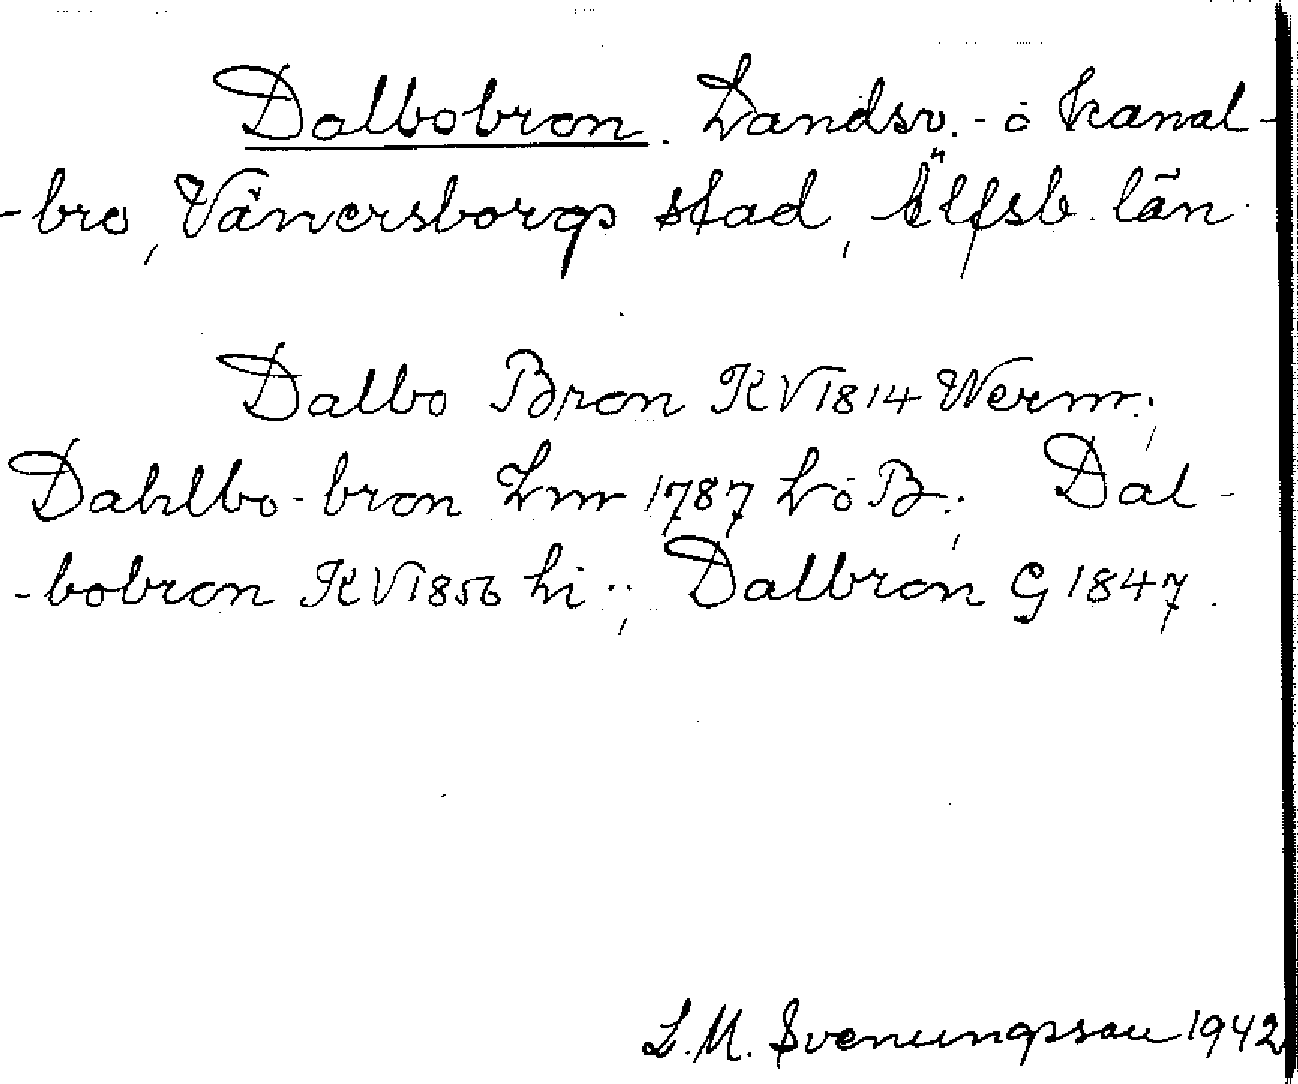 Dalbobron. Landsv.- o kanal-
-bro, Vänersborgs stad, Älfsb. län.
Dalbo Bron KV 1814 Werm.;
Dahlbo-bron Lmr 1787 LöB.; Dal-
-bobron KV 1856 hi..; Dalbron G 1847.
L.M. Svenungsson 1942